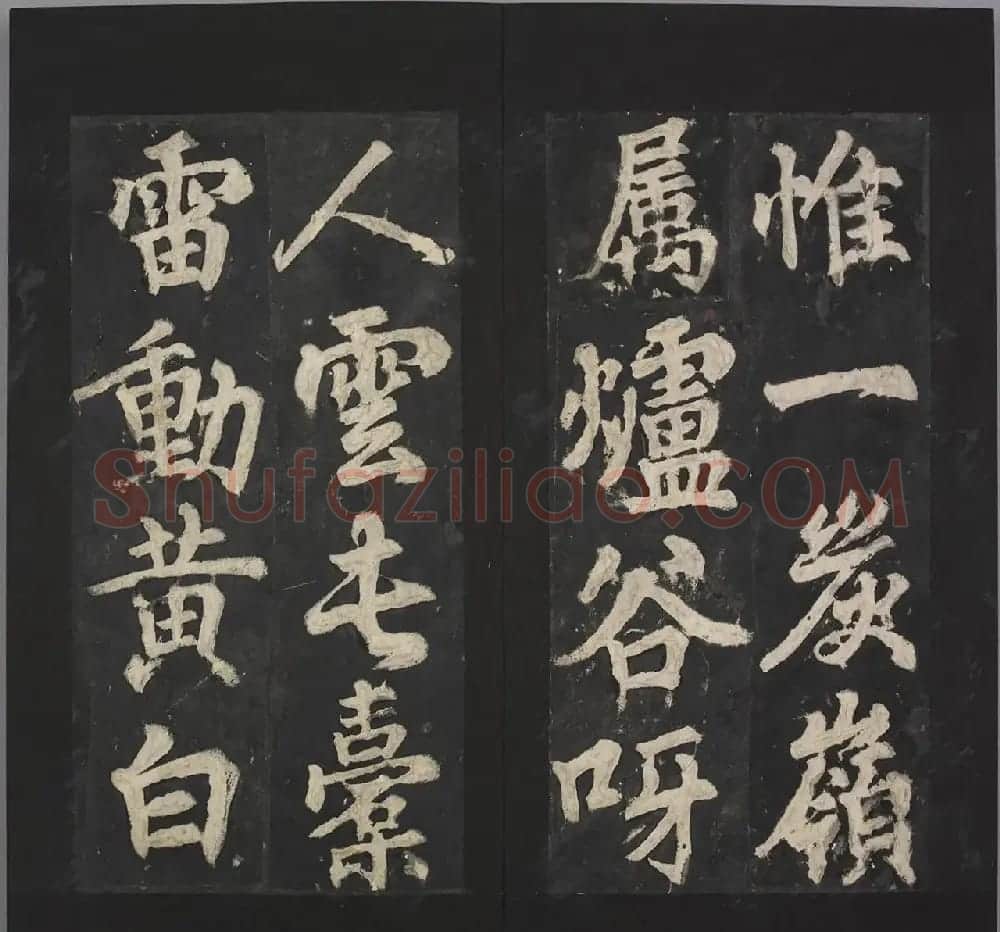 惟一炭嶺
属爐谷呀
人雲屯橐
雷動黄白
Shufaziliao.COM